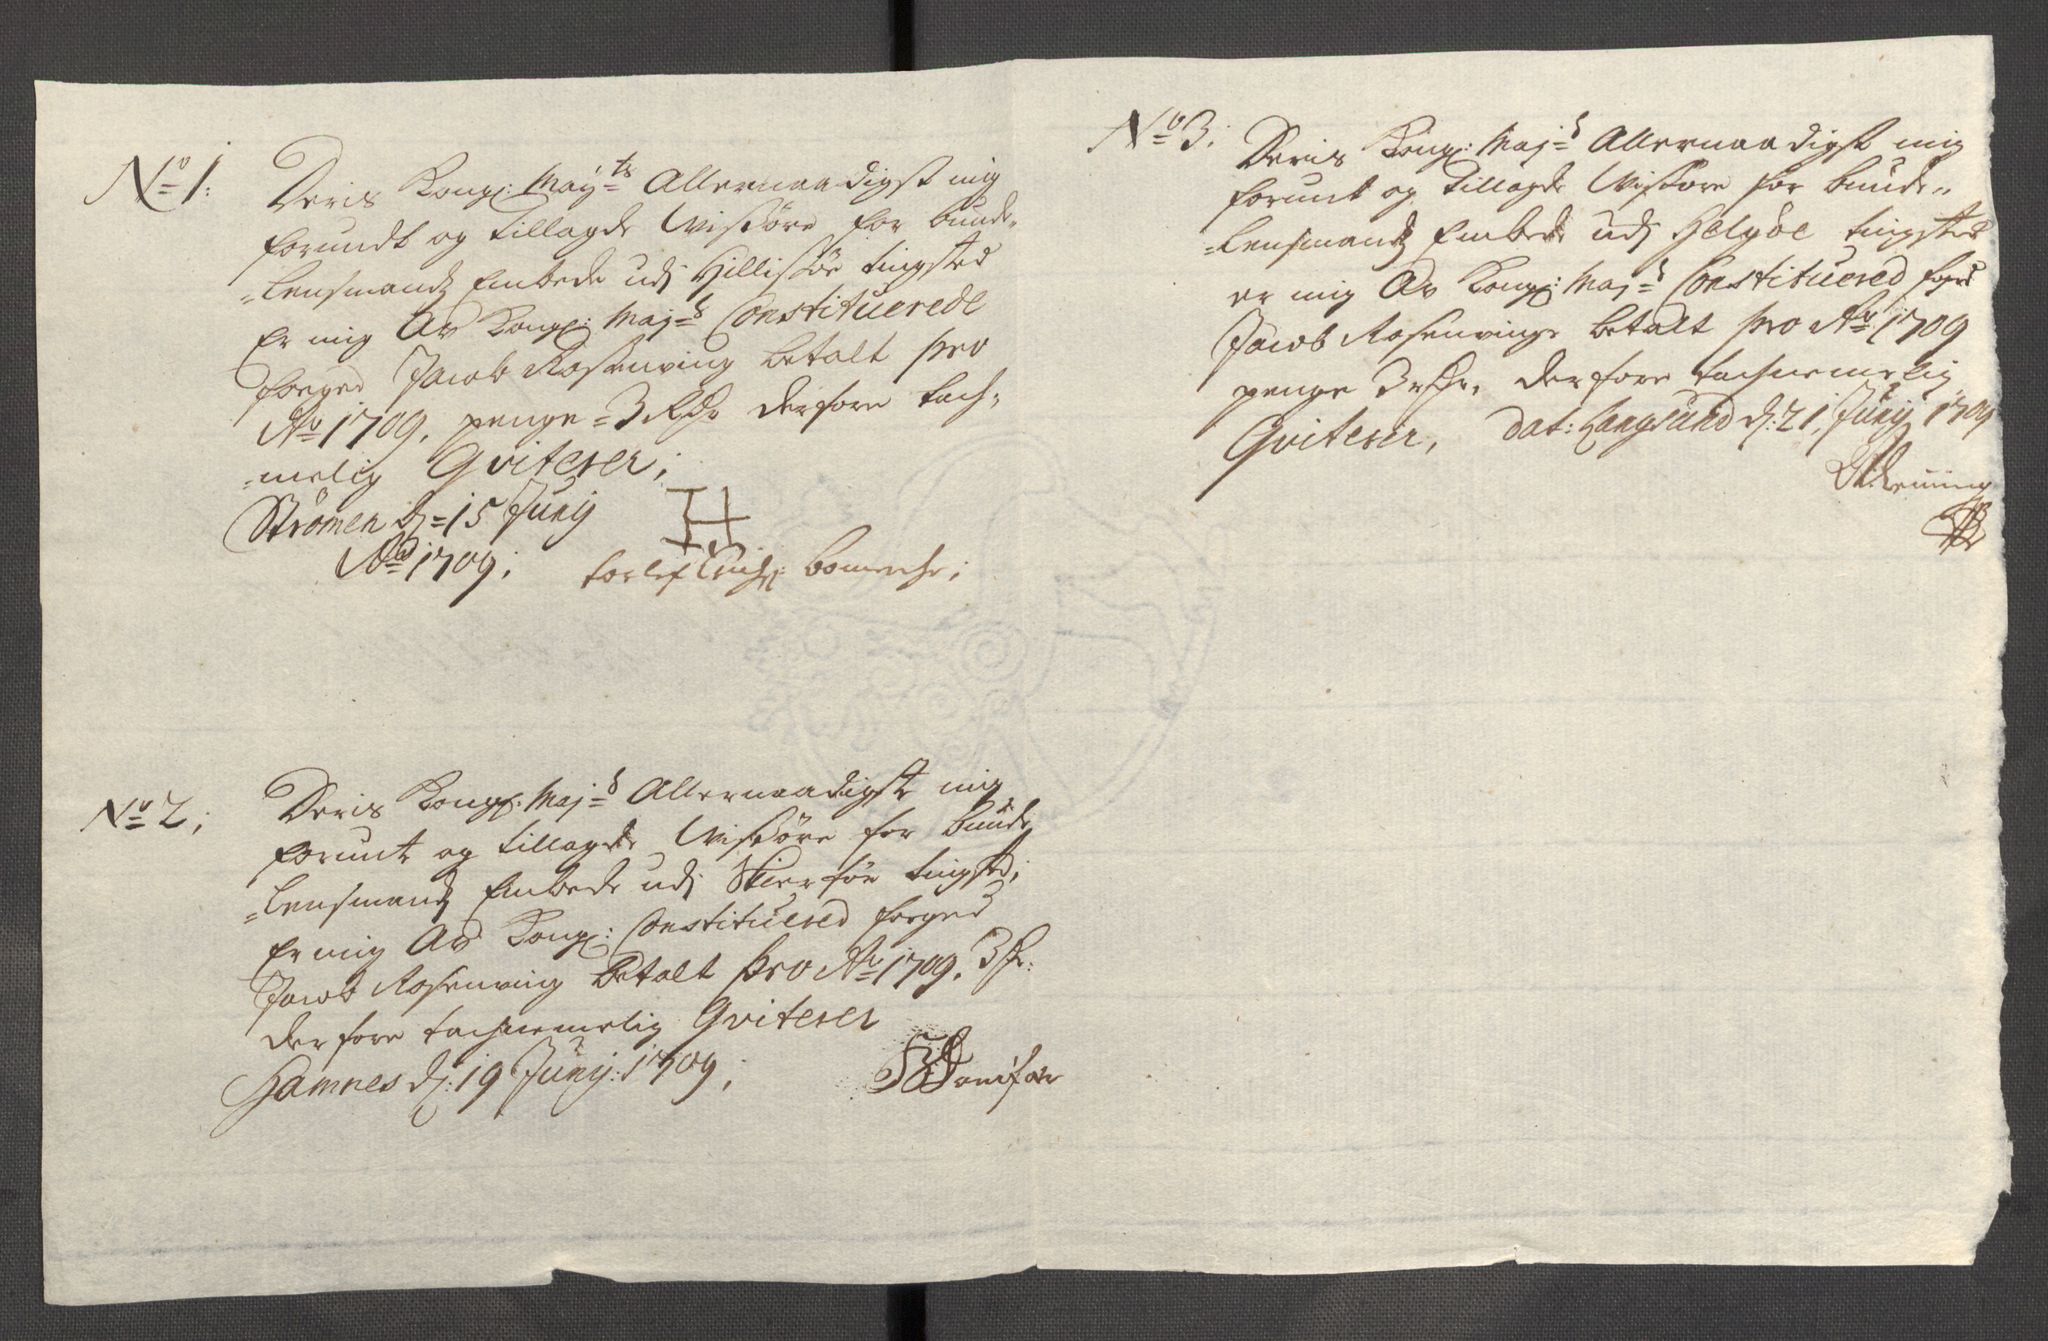 No 1:
Deris Kongl: Mayts Allernaadigst mig
forundt og tillagde Visøre for bunde-
=lensmandz Embede udj Hillisøe tingsted
Er mig Av Kongl: Majs Constituerede
foeged Jacob Rosenving betalt pro
Ao 1709. penge = 3 Rdr derfore tach-
=nemelig Qviterer;
Strømen dj = 15 Junij
Ao 1709;
H
torlef bomerche;
No 2;
Deris Kongl: Majs Allernaadigste mig
forunt og tillagde Visøre for bunde
=lensmandz Embede udj Skierføe tingsted;
Er mig Av Kongl: Constituered foeged
Jacob Rosenving betalt pro Ao 1709. 3 dr:
derfore tachnemelig Qviterer
Hamnes dj: 19 Junij: 1709;
No 3:
Deris Kongl: Majs Allernaadigst mig
forunt og tillagde Visøre for bunde-
=lensmandz Embede udj Helgøe tingsted
er mig Av Kongl: Majs Constituered foged
Jacob Rosenvinge betalt pro Ao 1709
penge 3 rdr. derfore tachnemelig
Qviterer, dat: Langsund dj: 21 Junij 1709